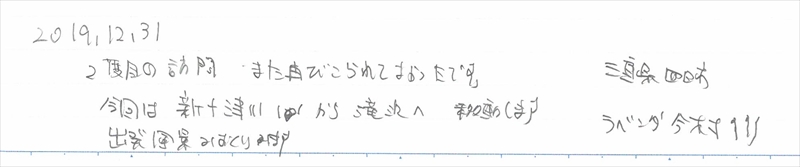 2019,12,31
2度目の訪問 また再びこられてよかったです 三重県四日市
今回は新十津川 から滝沢へ 移動します ラベンダ今村
出発風景 ます